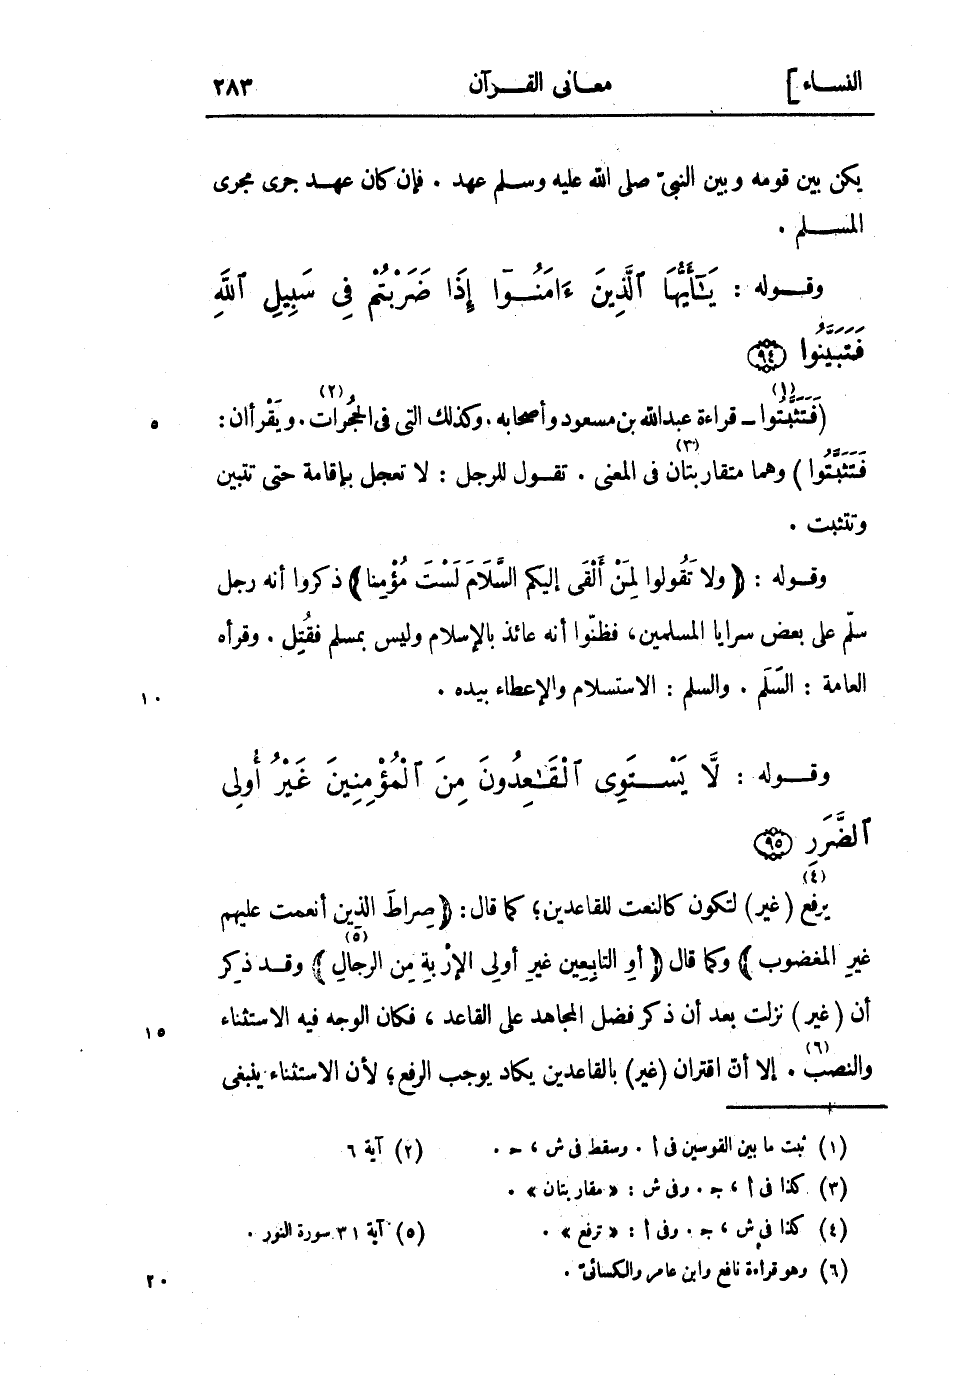 النساء] معانى القرآن ٢٨٣
يكن بين قومه وبين النبىّ صلى الله عليه وسلم عهد . فإن كان عهد جرى مجرى
المسلم .
وقوله : يَـٰٓأَيُّهَا ٱلَّذِينَ ءَامَنُوٓا إِذَا ضَرَبْتُمْ فِى سَبِيلِ ٱللَّهِ
فَتَبَيَّنُوا ﴿٩٤﴾
(فَتَثَبَّتُوا (١) ــ قراءة عبدالله بن مسعود وأصحابه . وكذلك التى فى الحُجُرات (٢) . ويَقْرأان : ٥
فَتَثَبَّتُوا ) وهما متقاربتان (٣) فى المعنى . تقول للرجل : لا تعجل بإقامة حتى تتبين
وتتثبت .
وقوله : ﴿ ولا تَقُولوا لِمَنْ أَلْقَى إليكم السَّلَامَ لَسْتَ مُؤْمِنا ﴾ ذكروا أنه رجل
سلّم على بعض سرايا المسلمين، فظنّوا أنه عائذ بالإسلام وليس بمسلم فقُتِل . وقرأه
العامة : السَّلَم . والسلم : الاستسلام والإعطاء بيده . ١٠
وقوله : لَّا يَسْتَوِى ٱلْقَـٰعِدُونَ مِنَ ٱلْمُؤْمِنِينَ غَيْرُ أُولِى
ٱلضَّرَرِ ﴿٩٥﴾
يرفع (٤) (غير) لتكون كالنعت للقاعدين؛ كما قال: ﴿ صِراطَ الذين أنعمت عليهم
غيرِ المغضوب ﴾ وكما قال ﴿ أوِ التابِعِين غيرِ أولى الإرْبةِ مِن الرجالِ (٥) ﴾ وقد ذكر
أن (غير) نزلت بعد أن ذكر فضل المجاهد على القاعد ، فكان الوجه فيه الاستثناء ١٥
والنصب (٦) . إلا أنّ اقتران (غير) بالقاعدين يكاد يوجب الرفع؛ لأن الاستثناء ينبغى
(١) ثبت ما بين القوسين فى أ . وسقط فى ش ، ج . (٢) آية ٦
(٣) كذا فى أ ، ج . وفى ش : « مقاربتان » .
(٤) كذا فى ش ، ج . وفى أ : « ترفع » . (٥) آية ٣١ سورة النور .
(٦) وهو قراءة نافع وابن عامر والكسائىّ . ٢٠